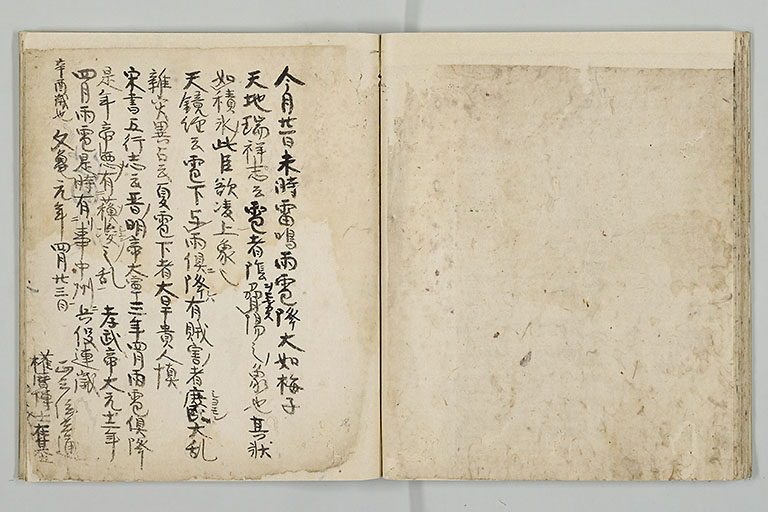 今月廿一日未時雷鳴雨雹降大如梅子
天地瑞祥志云雹者陰脅陽之象也其状
如積氷此臣欲凌上象也
天鏡経云雹下与雨倶降有賊害者 大乱
雑災異占云夏雹下者大旱貴人慎
宋書五行志云晋明帝太寧三年四月雨雹倶降
是年帝崩有 之乱 孝武帝太元十二年
四月雨雹是時有事中州兵役連歳
辛酉歳也 文亀元年四月廿三日
正三位
権暦博士在基